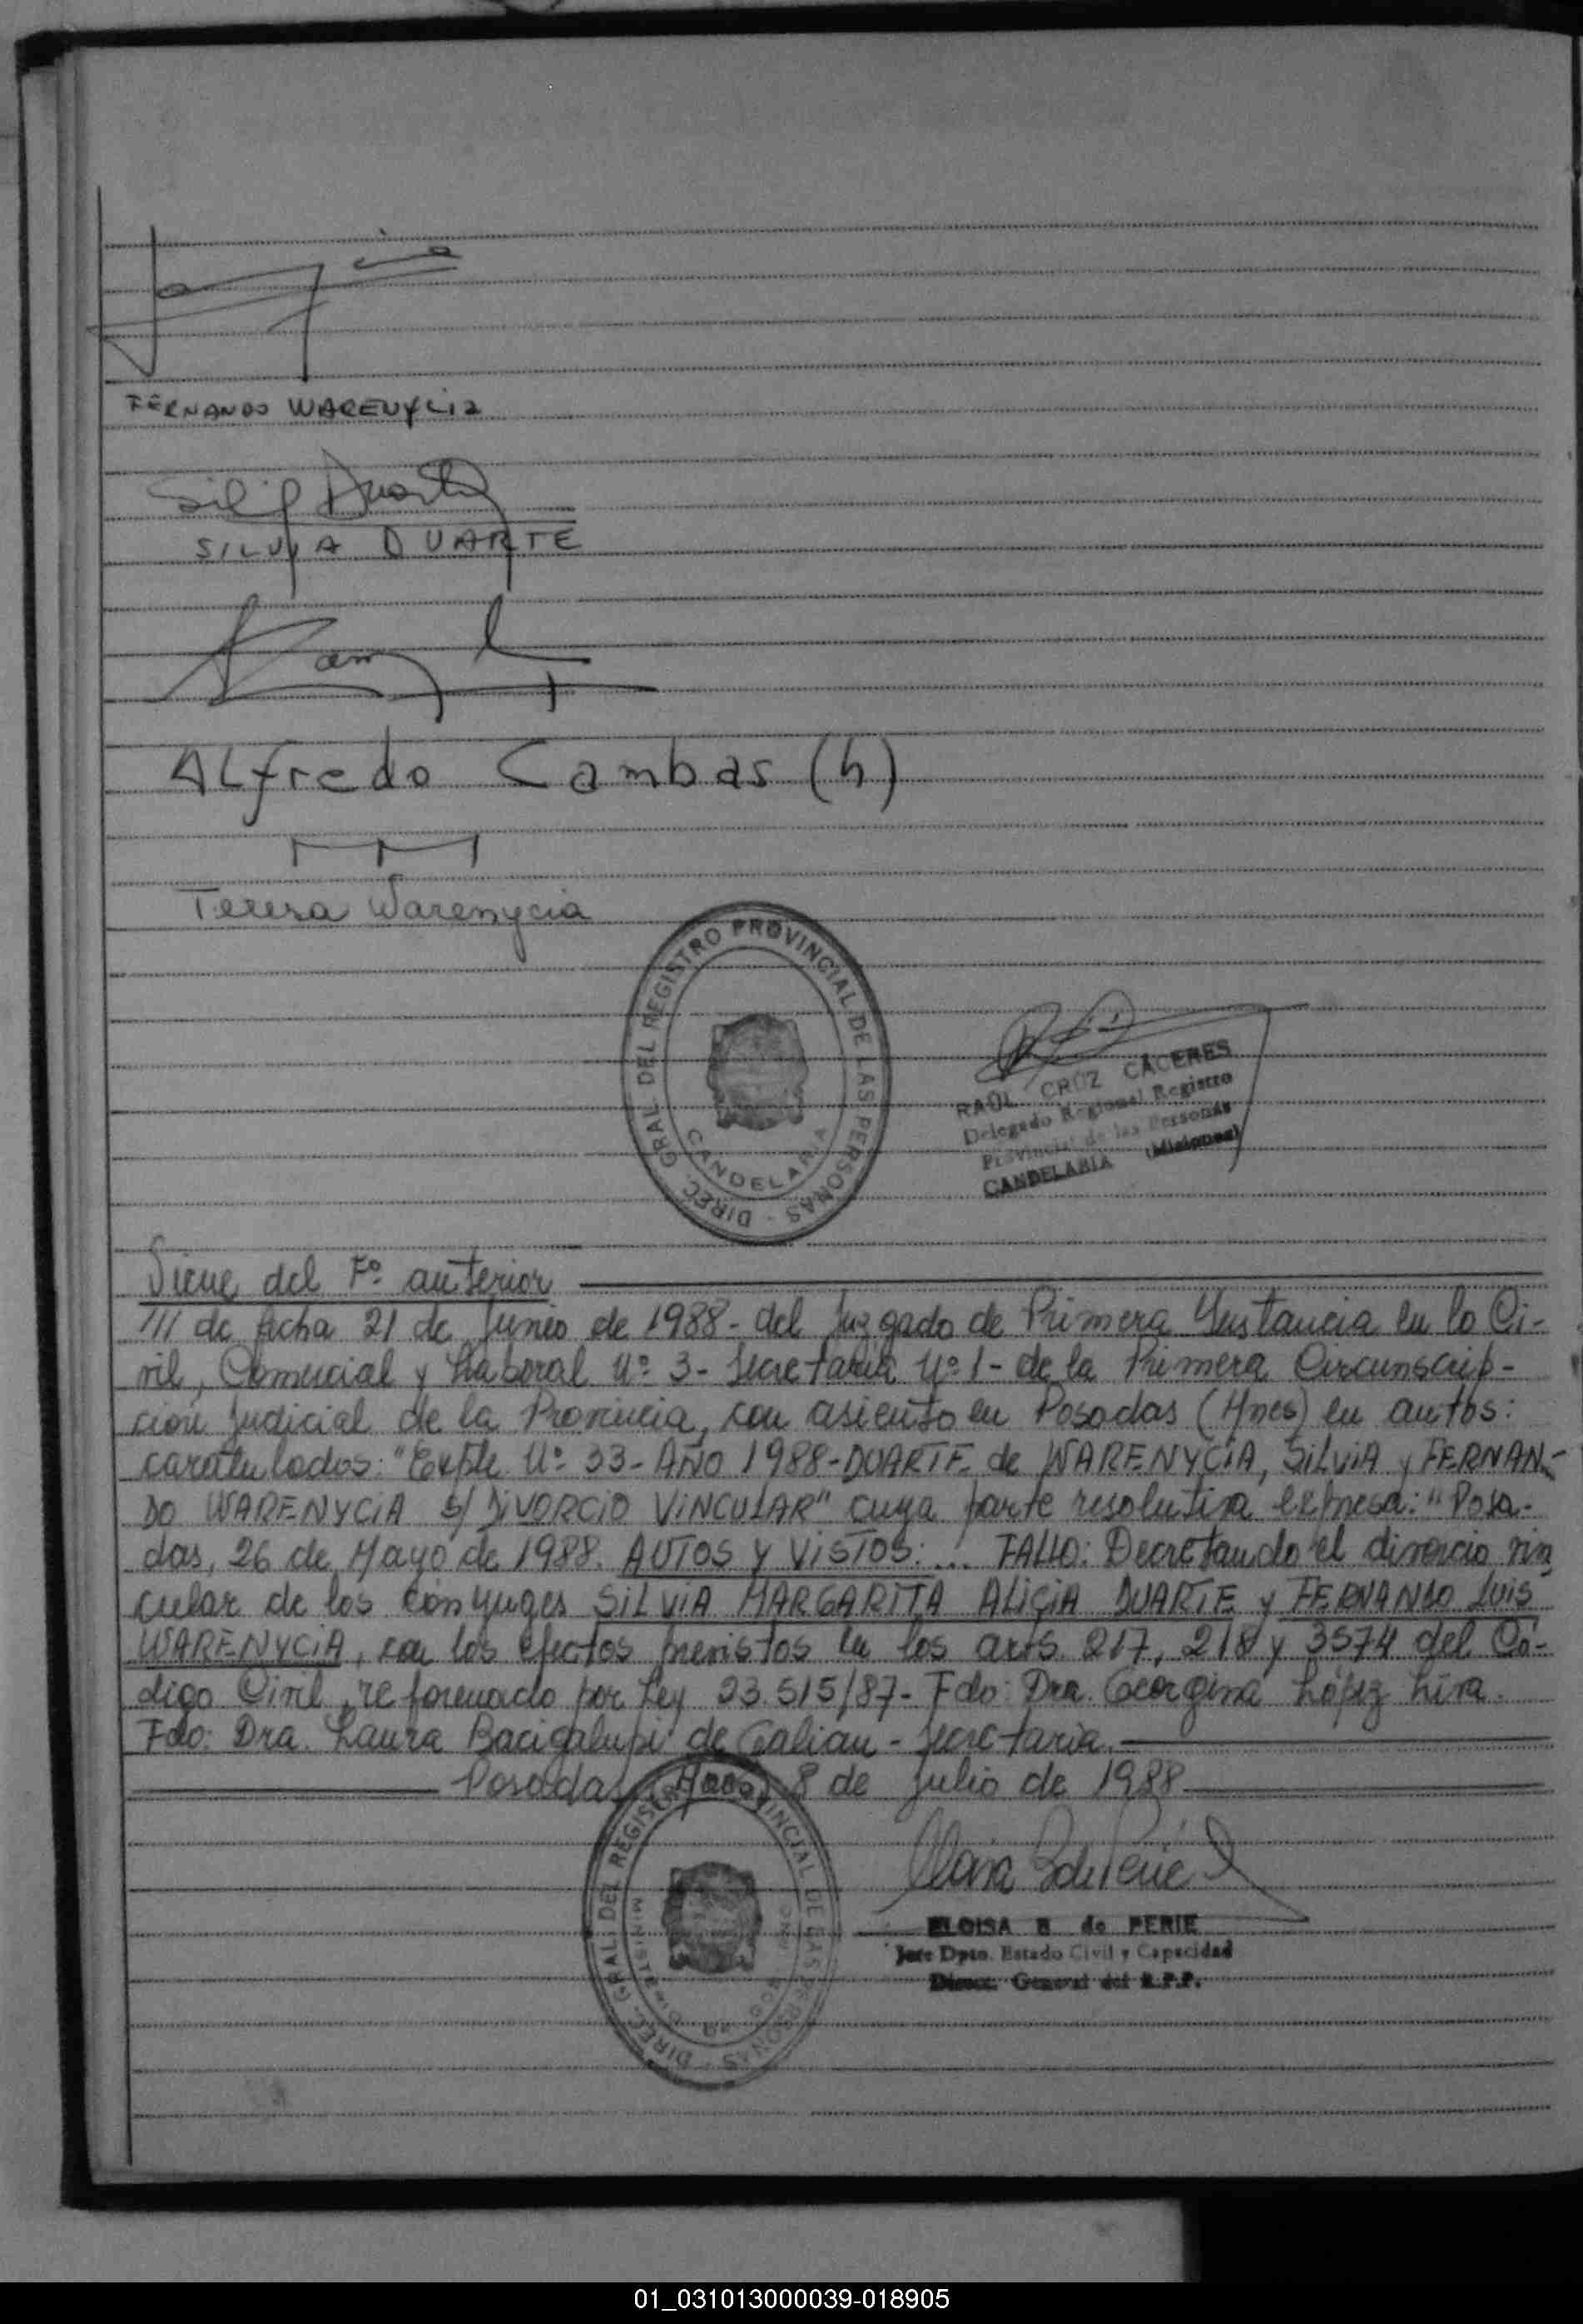 FERNANDO WARENYCIA
Silvia Duarte
SILVIA DUARTE
ALfredo Cambas (h)
Teresa Warenycia
DIREC. GRAL. DEL REGISTRO PROVINCIAL DE LAS PERSONAS -
CANDELARIA
RAUL CRUZ CACERES
Delegado Regional Registro
Provincial de las Personas
CANDELARIA (Misiones)
Viene del Fº anterior
/// de fecha 21 de Junio de 1988- del Juzgado de Primera Instancia en lo Ci-
vil, Comercial y Laboral Nº 3- Secretaria Nº 1- de la Primera Circunscrip-
ción Judicial de la Provincia, con asiento en Posadas (Mnes) en autos:
caratulados: "Expte Nº 33- AÑO 1988-DUARTE de WARENYCIA, SILVIA y FERNAN-
DO WARENYCIA S/ DIVORCIO VINCULAR" cuya parte resolutiva expresa: "Posa-
das, 26 de Mayo de 1988. AUTOS Y VISTOS: ... FALLO: Decretando el divorcio vin
cular de los cónyuges SILVIA MARGARITA ALICIA DUARTE y FERNANDO LUIS
WARENYCIA, con los efectos previstos en los arts. 217, 218 y 3574 del Có-
digo Civil, reformado por Ley 23.515/87- Fdo: Dra. Georgina López Liva.
Fdo: Dra. Laura Bacigalupi de Galian - Secretaria.
Posadas (Mnes) 8 de Julio de 1988
DIREC. GRAL. DEL REGISTRO PROVINCIAL DE LAS PERSONAS -
ELOISA B de PERIE
Jefe Dpto. Estado Civil y Capacidad
Direcc. General del R.P.P.
01_031013000039-018905